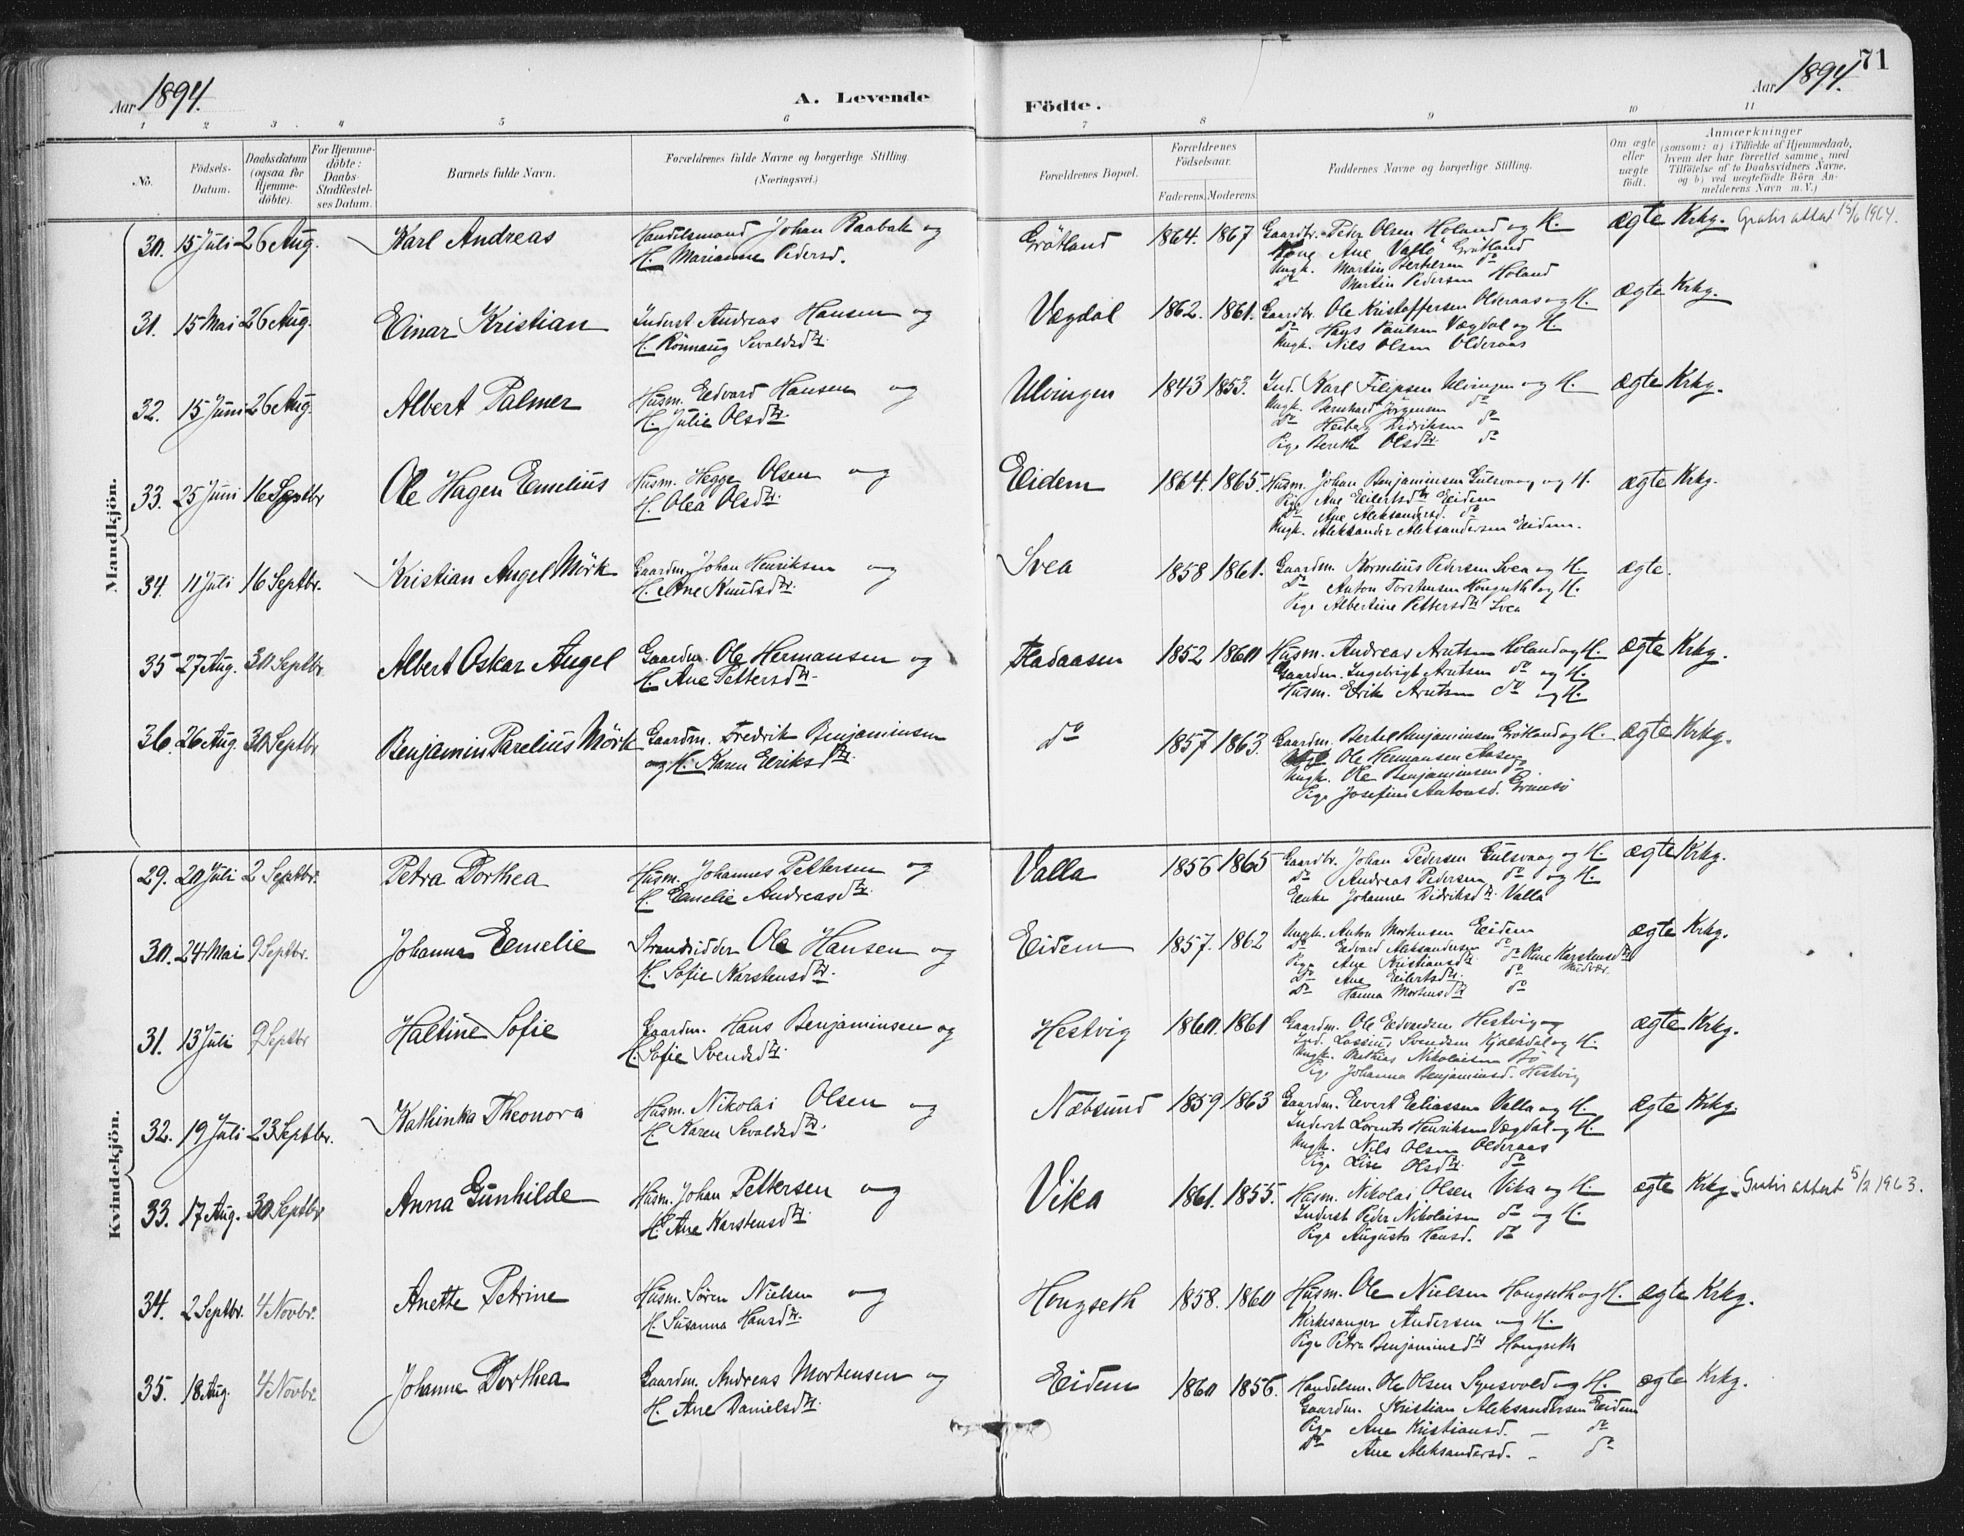 Aar 1894. A. Levende Födte. Aar 1894. 71
1 2 3 4 5 6 7 8 9 10 11
No.
Födsels-Datum.
Daabsdatum (ogsaa for Hjemmedöbte).
For Hjemmedöbte: Daabs-Stadfæstelses Datum.
Barnets fulde Navn.
Forældrenes fulde Navne og borgerlige Stilling.
(Næringsvei.)
Forældrenes Bopæl.
Forældrenes Födselsaar.
Faderens. Moderens.
Faddernes Navne og borgerlige Stilling.
Om ægte eller uægte födt.
Anmærkninger
(saasom: a) i Tilfælde af Hjemmedaab, hvem der har forrettet samme, med Tilföielse af to Daabsvidners Navne, og b) ved uægtefödte Börn Anmelderens Navn m. V.)
Mandkjön.
30. 15 Juli 26 Aug. Karl Andreas Handelsmand Johan Raabak og Grötland 1864. 1867 Gaardbr. Peder Olsen Holand og H. ægte Krkg. Gratis attest 15/6 1964.
H. Marianne Pedersd. Kone Ane Valla Grötland
Ungk. Martin Bertelsen do
do Martin Pedersen Holand
31. 15 Mai 26 Aug. Einar Kristian Inderst Andreas Hansen og Vægdal 1862. 1861. Gaardbr. Ole Kristoffersen Olderaas og H. ægte Krkg.
H. Rönnaug Sevaldsdtr. do Hans Paulsen Vægdal og H.
Ungk. Nils Olsen Olderaas
32. 15 Juni 26 Aug. Albert Palmer Husm. Edvard Hansen og Ulvingen 1843 1853. Ind. Karl Filipsen Ulvingen og H. ægte Krkg.
H. Julie Olsdtr. Ungk. Bernhard Jörgensen do
do Heiberg Didriksen do
Pige Berith Olsdtr. do
33. 25 Juni 16 Septbr Ole Hagen Emelius Husm. Hegge Olsen og Eidem 1864. 1865. Husm. Johan Benjaminsen Gulsvaag og H. ægte Krkg.
H. Olea Olsdtr. Pige Ane Eilertsdtr Eidem
do Ane Aleksandersd. do
Ungk. Aleksander Aleksandersen Eidem.
34. 11 Juli 16 Septbr. Kristian Angel Mörk Gaardm. Johan Henriksen og Svea 1858 1861. Gaardm. Kornelius Pedersen Svea og H. ægte.
H. Ane Knudsdtr. do Anton Torstensen Hongseth og H.
Pige Albertine Pettersdtr Svea
35 27 Aug. 30 Septbr. Albert Oskar Angel Gaardm. Ole Hermansen og Fladaasen 1852 1860 Husm. Andreas Arntsen Holand og H. ægte Krkg.
H. Ane Pettersdtr. Gaardm. Ingebrigt Arntsen do og H.
Husm. Erik Arntsen do og H.
36. 26 Aug. 30 Septbr Benjamin Parelius Mörk Gaardm. Fredrik Benjaminsen do 1857 1863. Gaardm. Bertel Benjaminsen Grötland og H. ægte Krkg.
og H. Karen Eriksdtr. Ole Hermansen Aasen
Ungk. Ole Benjaminsen do
Pige Josefine Antonsd.
Kvindekjön.
29. 20 Juli 2 Septbr. Petra Dorthea Husm. Johannes Pettersen og Valla 1856 1865 Gaardbr. Johan Pedersen Gulsvaag og H. ægte Krkg.
H. Emelie Andreasdtr. do Andreas Pedersen do og H.
Enke Johanna Didriksdtr. Valla
30. 24 Mai 9 Septbr. Johanna Emelie Strandsidder Ole Hansen og Eidem 1857. 1862 Ungk. Anton Mortensen Eidem ægte Krkg.
H. Sofie Karstensdtr. do Edvard Aleksandersen do
Pige Ane Kristiansdtr. do Karstensdtr
do Ane Eilertsdtr. do
do Hanna Mortensdtr do
31. 13 Juli 9 Septbr Haltine Sofie Gaardm. Hans Benjaminsen og Hestvig 1860. 1861 Gaardm. Ole Edvardsen Hestvig og ægte Krkg.
H. Sofie Svendsdtr. Ind. Lossius Svendsen Kjælkdal og H.
Ungk. Mathias Nikolaisen Bö
Pige Johanna Benjaminsd. Hestvig
32. 19 Juli 23 Septbr. Kathinka Theonora Husm. Nikolai Olsen og Næbsund 1859 1863 Gaardm. Eevert Eeliassen Valla og H. ægte Krkg.
H. Karen Sevaldsdtr. Inderst Lorents Henriksen Vægdal og H.
Ungk. Nils Olsen Olderaas
Pige Lise Olsdtr. do
33. 17 Aug. 30 Septbr Anna Gunhilde Husm. Johan Pettersen og Vika 1861. 1855. Husm. Nikolai Olsen Vika og H. ægte Krkg. Gratis attest 5/2 1963.
H. Ane Karstensdtr. Inderst Peder Nikolaisen do og H.
Pige Augusta Hansd. do
34. 2 Septbr. 4 Novbr. Anette Petrine Husm. Sören Nielsen og Hongseth 1858. 1860 Husm. Ole Nielsen Hongseth og H. ægte Krkg.
H. Susanna Hansdtr. Kirkesanger Andersen og H.
Pige Petra Benjaminsdtr Hongseth
35. 18 Aug. 4 Novbr. Johanne Dorthea Gaardm. Andreas Mortensen og Eidem 1860 1856. Handelsm. Ole Olsen Synsvold og H. ægte Krkg.
H. Ane Danielsdtr. Gaardm. Kristian Aleksandersen Eidem
Pige Ane Kristiansd. — do
do Ane Aleksandersd. — do